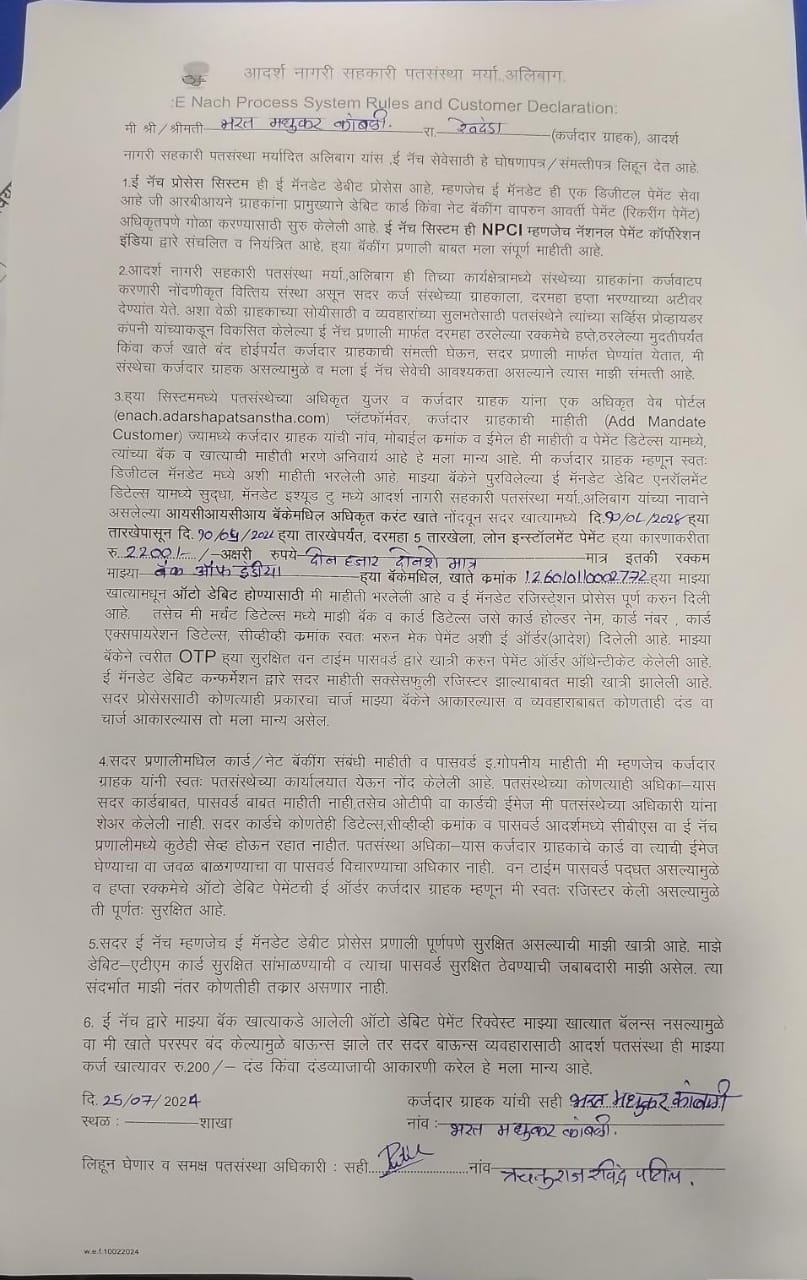 आदर्श नागरी सहकारी पतसंस्था मर्या.,अलिबाग.
:E Nach Process System Rules and Customer Declaration:
मी श्री/श्रीमती भरत मधुकर कोबळी. रा. रेवदंडा (कर्जदार ग्राहक), आदर्श
नागरी सहकारी पतसंस्था मर्यादित अलिबाग यांस ,ई नॅच सेवेसाठी हे घोषणापत्र/संमत्तीपत्र लिहून देत आहे.
1.ई नॅच प्रोसेस सिस्टम ही ई मॅनडेट डेबीट प्रोसेस आहे, म्हणजेच ई मॅनडेट ही एक डिजीटल पेमेंट सेवा
आहे जी आरबीआयने ग्राहकांना प्रामुख्याने डेबिट कार्ड किंवा नेट बॅकींग वापरुन आवर्ती पेमेंट (रिकरींग पेमेंट)
अधिकृतपणे गोळा करण्यासाठी सुरु केलेली आहे. ई नॅच सिस्टम ही NPCI म्हणजेच नॅशनल पेमेंट कॉर्पोरेशन
इंडिया द्वारे संचलित व नियंत्रित आहे, ह्या बॅकींग प्रणाली बाबत मला संपूर्ण माहीती आहे.
2.आदर्श नागरी सहकारी पतसंस्था मर्या.,अलिबाग ही तिच्या कार्यक्षेत्रामध्ये संस्थेच्या ग्राहकांना कर्जवाटप
करणारी नोंदणीकृत वित्तिय संस्था असून सदर कर्ज संस्थेच्या ग्राहकाला, दरमहा हप्ता भरण्याच्या अटीवर
देण्यांत येते. अशा वेळी ग्राहकाच्या सोयीसाठी व व्यवहारांच्या सुलभतेसाठी पतसंस्थेने त्यांच्या सर्व्हिस प्रोव्हायडर
कंपनी यांच्याकडून विकसित केलेल्या ई नॅच प्रणाली मार्फत दरमहा ठरलेल्या रक्कमेचे हप्ते,ठरलेल्या मुदतीपर्यंत
किंवा कर्ज खाते बंद होईपर्यंत कर्जदार ग्राहकाची संमत्ती घेऊन, सदर प्रणाली मार्फत घेण्यांत येतात, मी
संस्थेचा कर्जदार ग्राहक असल्यामुळे व मला ई नॅच सेवेची आवश्यकता असल्याने त्यास माझी संमत्ती आहे.
3.ह्या सिस्टिममध्ये पतसंस्थेच्या अधिकृत युजर व कर्जदार ग्राहक यांना एक अधिकृत वेब पोर्टल
(enach.adarshapatsanstha.com) प्लॅटफॉर्मवर, कर्जदार ग्राहकाची माहीती (Add Mandate
Customer) ज्यामध्ये कर्जदार ग्राहक यांची नांव, मोबाईल क्रमांक व ईमेल ही माहीती व पेमेंट डिटेल्स यामध्ये,
त्यांच्या बॅक व खात्याची माहीती भरणे अनिवार्य आहे हे मला मान्य आहे. मी कर्जदार ग्राहक म्हणून स्वतः
डिजीटल मॅनडेट मध्ये अशी माहीती भरलेली आहे. माझ्या बॅकेने पुरविलेल्या ई मॅनडेट डेबिट एनरॉलमेंट
डिटेल्स यामध्ये सुद्धा, मॅनडेट इश्यूड टु मध्ये आदर्श नागरी सहकारी पतसंस्था मर्या.,अलिबाग यांच्या नावाने
असलेल्या आयसीआयसीआय बॅकेमधिल अधिकृत करंट खाते नोंदवून सदर खात्यामध्ये दि. ह्या
तारखेपासून दि. ह्या तारखेपर्यंत, दरमहा 5 तारखेला, लोन इन्स्टॉलमेंट पेमेंट ह्या कारणाकरीता
रु. 2200/- /-अक्षरी रुपये दोन हजार दोनशे मात्र मात्र इतकी रक्कम
माझ्या बँक ऑफ इंडिया ह्या बॅकेमधिल, खाते क्रमांक 126010110002772 ह्या माझ्या
खात्यामधून ऑटो डेबिट होण्यासाठी मी माहीती भरलेली आहे व ई मॅनडेट रजिस्ट्रेशन प्रोसेस पूर्ण करुन दिली
आहे. तसेच मी मर्चंट डिटेल्स मध्ये माझी बॅक व कार्ड डिटेल्स जसे कार्ड होल्डर नेम, कार्ड नंबर , कार्ड
एक्सपायरेशन डिटेल्स, सीव्हीव्ही क्रमांक स्वतः भरुन मेक पेमेंट अशी ई ऑर्डर(आदेश) दिलेली आहे. माझ्या
बॅकेने त्वरीत OTP ह्या सुरक्षित वन टाईम पासवर्ड द्वारे खात्री करुन पेमेंट ऑर्डर ऑथेन्टीकेट केलेली आहे.
ई मॅनडेट डेबिट कन्फर्मेशन द्वारे सदर माहीती सक्सेसफुली रजिस्टर झाल्याबाबत माझी खात्री झालेली आहे.
सदर प्रोसेससाठी कोणत्याही प्रकारचा चार्ज माझ्या बॅकेने आकारल्यास व व्यवहाराबाबत कोणताही दंड वा
चार्ज आकारल्यास तो मला मान्य असेल.
4.सदर प्रणालीमधिल कार्ड/नेट बॅकींग संबंधी माहीती व पासवर्ड इ.गोपनीय माहीती मी म्हणजेच कर्जदार
ग्राहक यांनी स्वतः पतसंस्थेच्या कार्यालयात येऊन नोंद केलेली आहे. पतसंस्थेच्या कोणत्याही अधिका–यास
सदर कार्डबाबत, पासवर्ड बाबत माहीती नाही,तसेच ओटीपी वा कार्डची ईमेज मी पतसंस्थेच्या अधिकारी यांना
शेअर केलेली नाही. सदर कार्डचे कोणतेही डिटेल्स,सीव्हीव्ही क्रमांक व पासवर्ड आदर्शमध्ये सीबीएस वा ई नॅच
प्रणालीमध्ये कुठेही सेव्ह होऊन रहात नाहीत. पतसंस्था अधिका–यास कर्जदार ग्राहकाचे कार्ड वा त्याची ईमेज
घेण्याचा वा जवळ बाळगण्याचा वा पासवर्ड विचारण्याचा अधिकार नाही. वन टाईम पासवर्ड पद्धत असल्यामुळे
व हप्ता रक्कमेचे ऑटो डेबिट पेमेंटची ई ऑर्डर कर्जदार ग्राहक म्हणून मी स्वतः रजिस्टर केली असल्यामुळे
ती पूर्णतः सुरक्षित आहे.
5.सदर ई नॅच म्हणजेच ई मॅनडेट डेबीट प्रोसेस प्रणाली पूर्णपणे सुरक्षित असल्याची माझी खात्री आहे. माझे
डेबिट–एटीएम कार्ड सुरक्षित सांभाळण्याची व त्याचा पासवर्ड सुरक्षित ठेवण्याची जबाबदारी माझी असेल. त्या
संदर्भात माझी नंतर कोणतीही तक्रार असणार नाही.
6. ई नॅच द्वारे माझ्या बॅक खात्याकडे आलेली ऑटो डेबिट पेमेंट रिक्वेस्ट माझ्या खात्यात बॅलन्स नसल्यामुळे
वा मी खाते परस्पर बंद केल्यामुळे बाऊन्स झाले तर सदर बाऊन्स व्यवहारासाठी आदर्श पतसंस्था ही माझ्या
कर्ज खात्यावर रु.200/– दंड किंवा दंडव्याजाची आकारणी करेल हे मला मान्य आहे.
दि. 25/07/2024 कर्जदार ग्राहक यांची सही भरत मधुकर कोबळी
स्थळ : शाखा नांव : भरत मधुकर कोबळी.
लिहून घेणार व समक्ष पतसंस्था अधिकारी : सही नांव रविंद्र पाटिल.
w.e.f.10022024